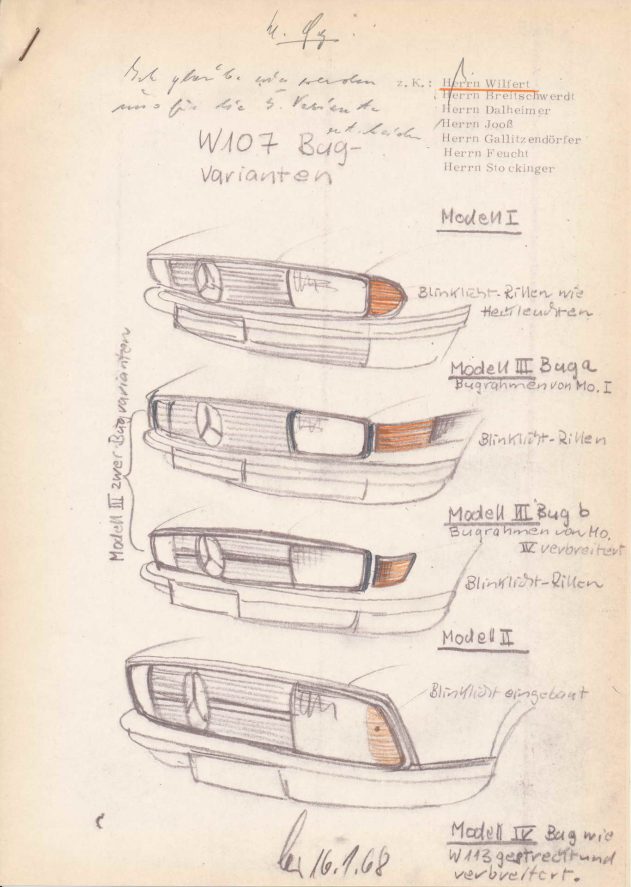 z. K.: Herrn Wilfert
Herrn Breitschwerdt
Herrn Dalheimer
Herrn Jooß
Herrn Gallitzendörfer
Herrn Feucht
Herrn Stockinger
Ich glaube wir werden
uns für die 3. Variante
entscheiden
W107 Bug-
varianten
Modell I
Blinklicht-Rillen wie
Heckleuchten
Modell III Bug a
Bugrahmen von Mo. I
Blinklicht-Rillen
Modell III zwei Bugvarianten
Modell III Bug b
Bugrahmen von Mo.
IV verbreitert
Blinklicht-Rillen
Modell II
Blinklicht eingebaut
Modell IV Bug wie
W113 gestreckt und
verbreitert.
16.1.68